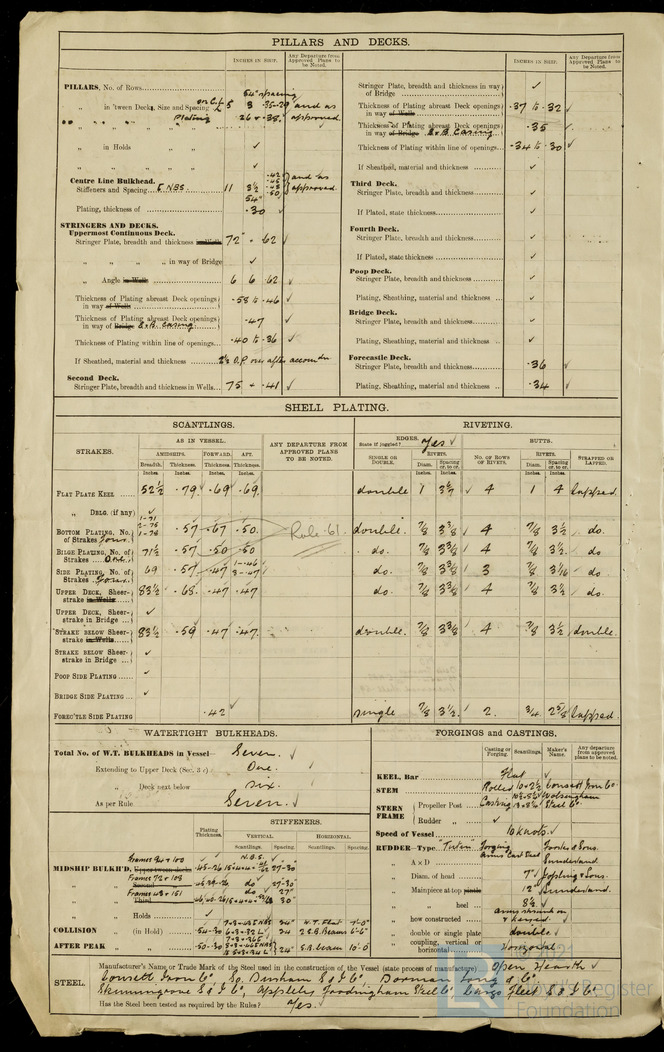 PILLARS AND DECKS.
INCHES IN SHIP.
Any Departure from Approved Plans to be Noted.
PILLARS, No. of Rows
54" spacing
„ in 'tween Decks, Size and Spacing
on C.L.
5 3 .35-.29 and as
„ „ „ „ „ Plating 26 + .38. approved
„ in Holds „ „ ✓
„ „ „ „ ✓
Centre Line Bulkhead.
Stiffeners and Spacing 11 3½ .42 .45 .48 .50 and as approved
54"
Plating, thickness of .30 ✓
STRINGERS AND DECKS.
Uppermost Continuous Deck.
Stringer Plate, breadth and thickness in Wells 72" . 62 ✓
„ „ „ „ in way of Bridge ✓
„ Angle in Wells 6 6 .62 ✓
Thickness of Plating abreast Deck openings in way of Wells .58 to .46 ✓
Thickness of Plating abreast Deck openings in way of Bridge E.&B. Casing .47 ✓
Thickness of Plating within line of openings .40 to .36 ✓
If Sheathed, material and thickness 2½ O.P. over after accomdn.
Second Deck.
Stringer Plate, breadth and thickness in Wells 75 + .41 ✓
INCHES IN SHIP.
Any Departure from Approved Plans to be Noted.
Stringer Plate, breadth and thickness in way of Bridge ✓
Thickness of Plating abreast Deck openings in way of Wells .37 to .32 ✓
Thickness of Plating abreast Deck openings in way of Bridge E.&B. Casing .35 ✓
Thickness of Plating within line of openings .34 to .30 ✓
If Sheathed, material and thickness ✓
Third Deck.
Stringer Plate, breadth and thickness ✓
If Plated, state thickness ✓
Fourth Deck.
Stringer Plate, breadth and thickness ✓
If Plated, state thickness ✓
Poop Deck.
Stringer Plate, breadth and thickness ✓
Plating, Sheathing, material and thickness ✓
Bridge Deck.
Stringer Plate, breadth and thickness ✓
Plating, Sheathing, material and thickness ✓
Forecastle Deck.
Stringer Plate, breadth and thickness .36 ✓
Plating, Sheathing, material and thickness .34 ✓
SHELL PLATING.
SCANTLINGS.
RIVETING.
STRAKES.
AS IN VESSEL.
AMIDSHIPS. FORWARD. AFT.
Breadth. Thickness. Thickness. Thickness.
Inches. Inches. Inches. Inches.
ANY DEPARTURE FROM APPROVED PLANS TO BE NOTED.
EDGES.
State if joggled? Yes ✓
SINGLE OR DOUBLE.
RIVETS.
Diam. Spacing cr. to cr.
Inches. Inches.
BUTTS.
NO. OF ROWS OF RIVETS.
RIVETS.
Diam. Spacing cr. to cr.
Inches. Inches.
STRAPPED OR LAPPED.
FLAT PLATE KEEL 52½ .79 .69 .69 double 1 4 1 4 lapped.
„ DBLG. (if any) ✓
BOTTOM PLATING, No. of Strakes four. 1-71 2-75 1-78 .57 .67 .50 Rule 61. double. ⅞ 3⅜ 4 ⅞ 3½ do.
BILGE PLATING, No. of Strakes One. 71½ .57 .50 .50 do. ⅞ 3⅜ 4 ⅞ 3½ do.
SIDE PLATING, No. of Strakes four. 69 .57 .47 1-.46 3-.47 do. ⅞ 3⅜ 3 ⅞ 3 1/16 do.
UPPER DECK, Sheerstrake in Wells 83½ .68 .47 .47 do. ⅞ 3⅜ 4 ⅞ 3½ do.
UPPER DECK, Sheerstrake in Bridge ✓
STRAKE BELOW Sheerstrake in Wells 83½ .59 .47 .47 double ⅞ 3⅜ 4 ⅞ 3½ double.
STRAKE BELOW Sheerstrake in Bridge ✓
POOP SIDE PLATING ✓
BRIDGE SIDE PLATING ✓
FOREC'TLE SIDE PLATING .42 ✓ single ⅞ 3½ 2. ¾ 2⅝ lapped.
WATERTIGHT BULKHEADS.
Total No. of W.T. BULKHEADS in Vessel Seven. ✓
Extending to Upper Deck (Sec. 3 c) One. ✓
„ Deck next below six. ✓
As per Rule Seven. ✓
Plating Thickness.
STIFFENERS.
VERTICAL. HORIZONTAL.
Scantlings. Spacing. Scantlings. Spacing.
MIDSHIP BULKH'D, Upper tween decks Frames 94 & 100 .45-.26 N.B.S. 27-30
„ Second „ Frames 72 & 108 do 27-30"
„ Third „ Frames 43 & 151 do 27" 30
„ Holds ✓
COLLISION „ (in Hold) .54-.30 24" W.T. Flat 7'-0" 2 S.B. Beams 6'-6"
AFTER PEAK „ „ .50-.30 24" S.B. Beam 10'-0"
FORGINGS AND CASTINGS.
Casting or Forging. Scantlings. Maker's Name. Any departure from approved plans to be noted.
KEEL, Bar Flat ✓
STEM Rolled 10 × 2½ Consett Iron Co
STERN FRAME
Propeller Post Casting Wolsingham Steel Co.
Rudder „ ✓
Speed of Vessel 10 knots. ✓
RUDDER—Type Forging Arms Cast Steel Forster & Sons. Sunderland.
„ A x D
„ Diam. of head 7" Jopling & Sons.
„ Mainpiece at top pintle 12" Sunderland.
„ „ heel 8½ ✓
„ how constructed Arms shrunk on & keyed.
„ double or single plate double. ✓
„ coupling, vertical or horizontal Horizontal
STEEL. Manufacturer's Name or Trade Mark of the Steel used in the construction of the vessel (state process of manufacture) Open Hearth ✓
Consett Iron Co. So. Durham S & I Co. Dorman Long & Co.
Skinningrove S & I Co, Appleby Frodingham Steel Co. Cargo Fleet S & I Co.
Has the Steel been tested as required by the Rules? Yes. ✓
© 2021
Lloyd's Register
Foundation